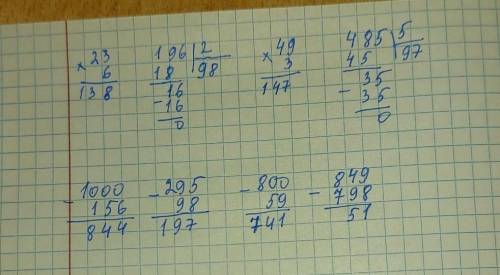 23 196 | 2 49 485 | 5
× 6 18 | 98 × 3 45 | 97
138 16 147 35
- 16 - 35
0 0
1000 295 800 849
- 156 - 98 - 59 - 798
844 197 741 51